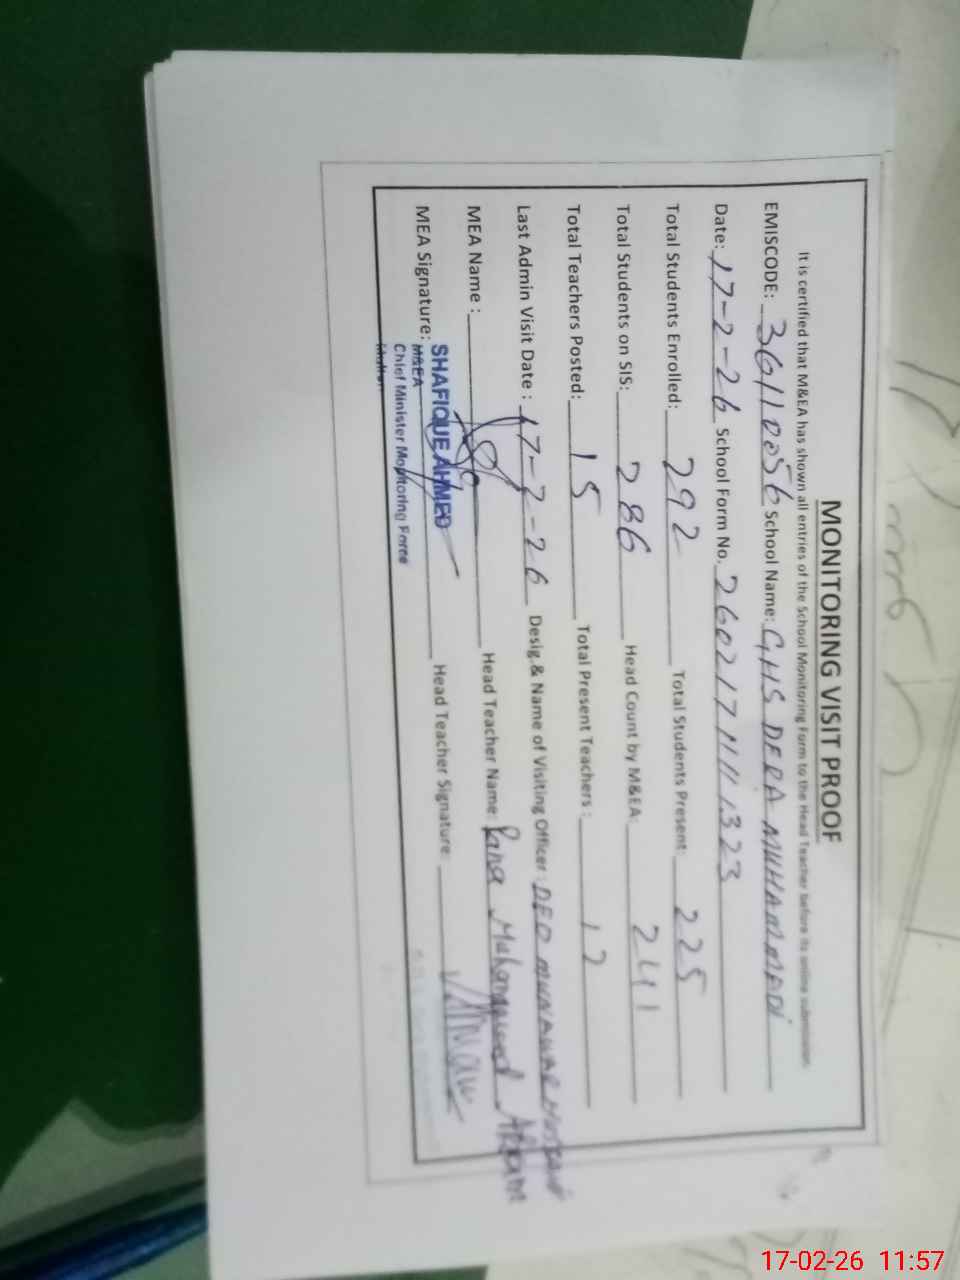 MONITORING VISIT PROOF
It is certified that M&EA has shown all entries of the School Monitoring Form to the Head Teacher before its online submission
EMISCODE: 36110056 School Name: GHS DERA MUHAMMADI
Date: 17-2-26 School Form No. 26021711111323
Total Students Enrolled: 292 Total Students Present: 225
Total Students on SIS: 286 Head Count by M&EA: 241
Total Teachers Posted: 15 Total Present Teachers: 12
Last Admin Visit Date: 17-2-26 Desig.& Name of Visiting Officer: DEO MUNAWAR
MEA Name: Head Teacher Name: Rana Muhammad
MEA Signature: SHAFIQUE AHMED Head Teacher Signature:
M&EA
Chief Minister Monitoring Force
Multan
17-02-26 11:57